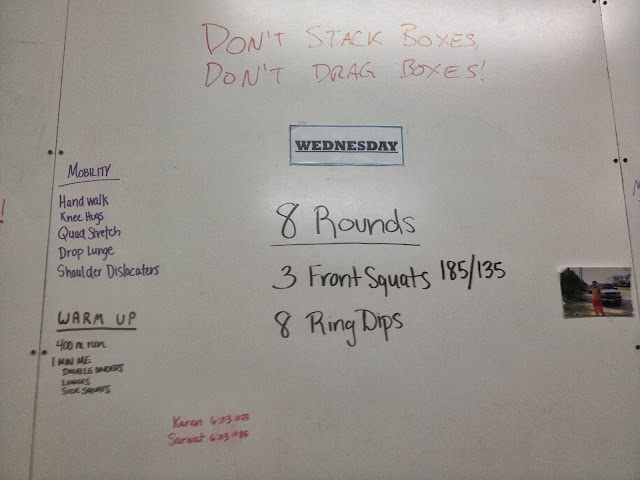 DON'T STACK BOXES,
DON'T DRAG BOXES!
WEDNESDAY
MOBILITY
Hand walk
Knee Hugs
Quad Stretch
Drop Lunge
Shoulder Dislocaters
WARM UP
400 m run
1 MIN ME
DOUBLE UNDERS
LUNGES
SQUATS
8 Rounds
3 Front Squats 185/135
8 Ring Dips
Karen 6:03
Sarwat 6:03